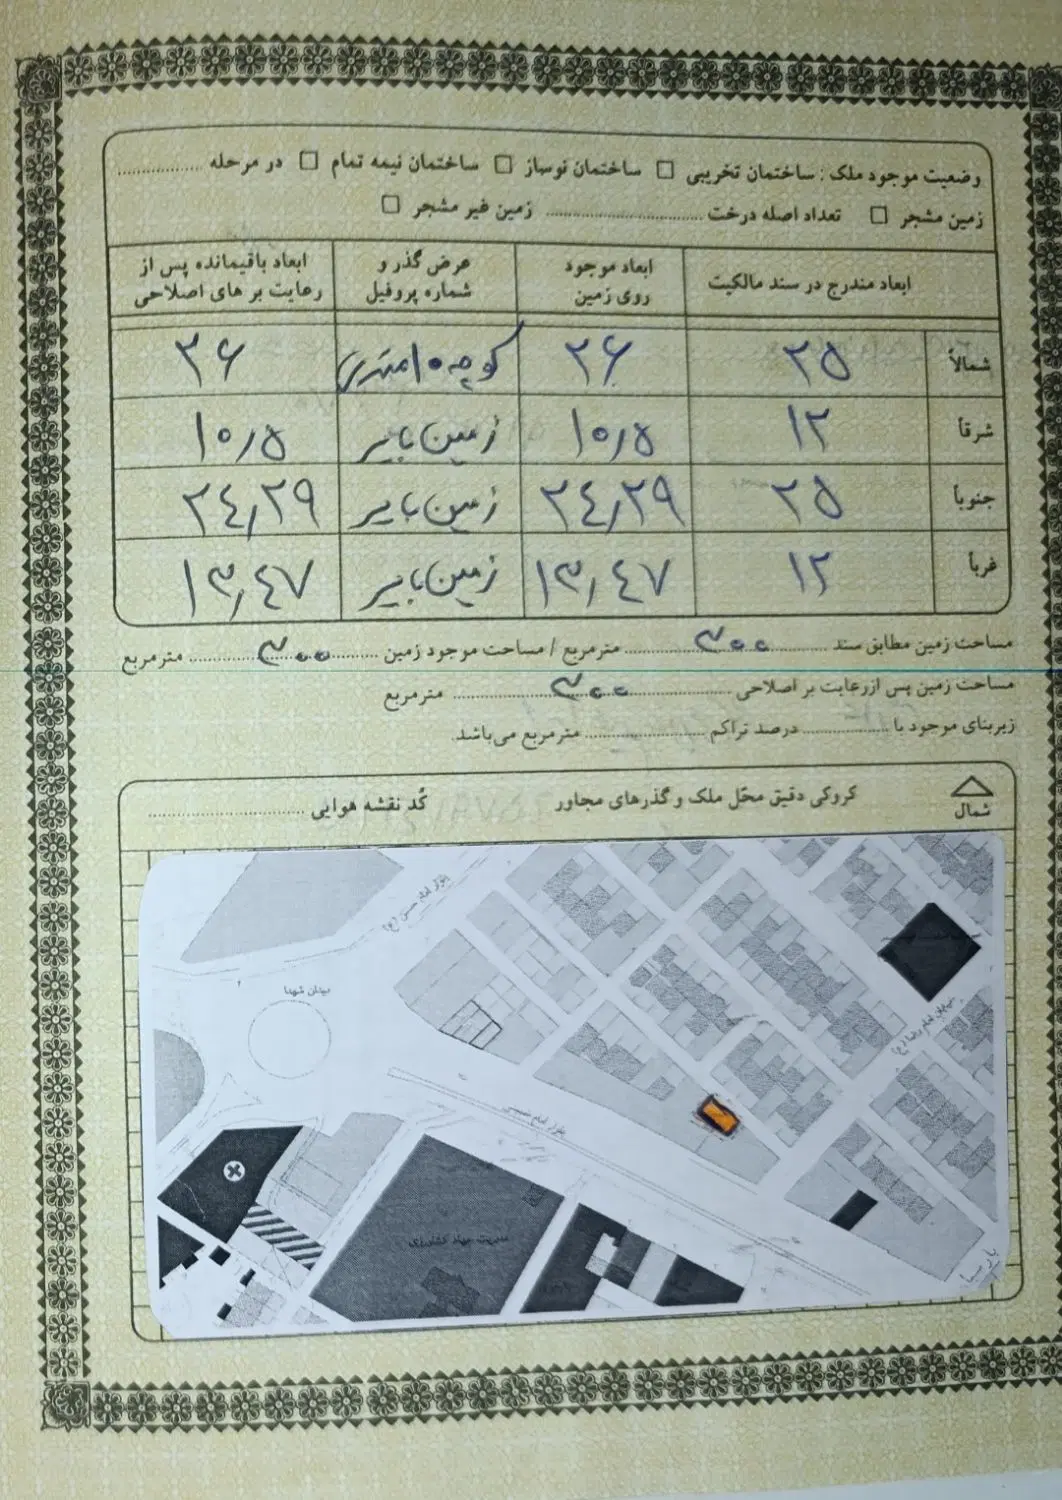 وضعیت موجود ملک : ساختمان تخریبی □ ساختمان نوساز □ ساختمان نیمه تمام □ در مرحله ....................
زمین مشجر □ تعداد اصله درخت .................................... زمین غیر مشجر □
ابعاد مندرج در سند مالکیت | ابعاد موجود روی زمین | عرض گذر و شماره پروفیل | ابعاد باقیمانده پس از رعایت بر های اصلاحی
شمالاً | ۲۵ | ۲۶ | کوچه ۱۰ متری | ۲۶
شرقاً | ۱۲ | ۱۰٫۵ | زمین بایر | ۱۰٫۵
جنوباً | ۲۵ | ۲٤٫۲۹ | زمین بایر | ۲٤٫۲۹
غرباً | ۱۲ | ۱۳٫٤۷ | زمین بایر | ۱۳٫٤۷
مساحت زمین مطابق سند ۳۰۰ مترمربع / مساحت موجود زمین ۳۰۰ مترمربع
مساحت زمین پس ازرعایت بر اصلاحی ۳۰۰ مترمربع
زیربنای موجود با .................. درصد تراکم .................. مترمربع می‌باشد.
شمال
کروکی دقیق محّل ملک و گذرهای مجاور
کُد نقشه هوایی ................................
بلوار امام حسن (ع)
میدان شهدا
خیابان امام رضا (ع)
بلوار امام خمینی
مدیریت جهاد کشاورزی